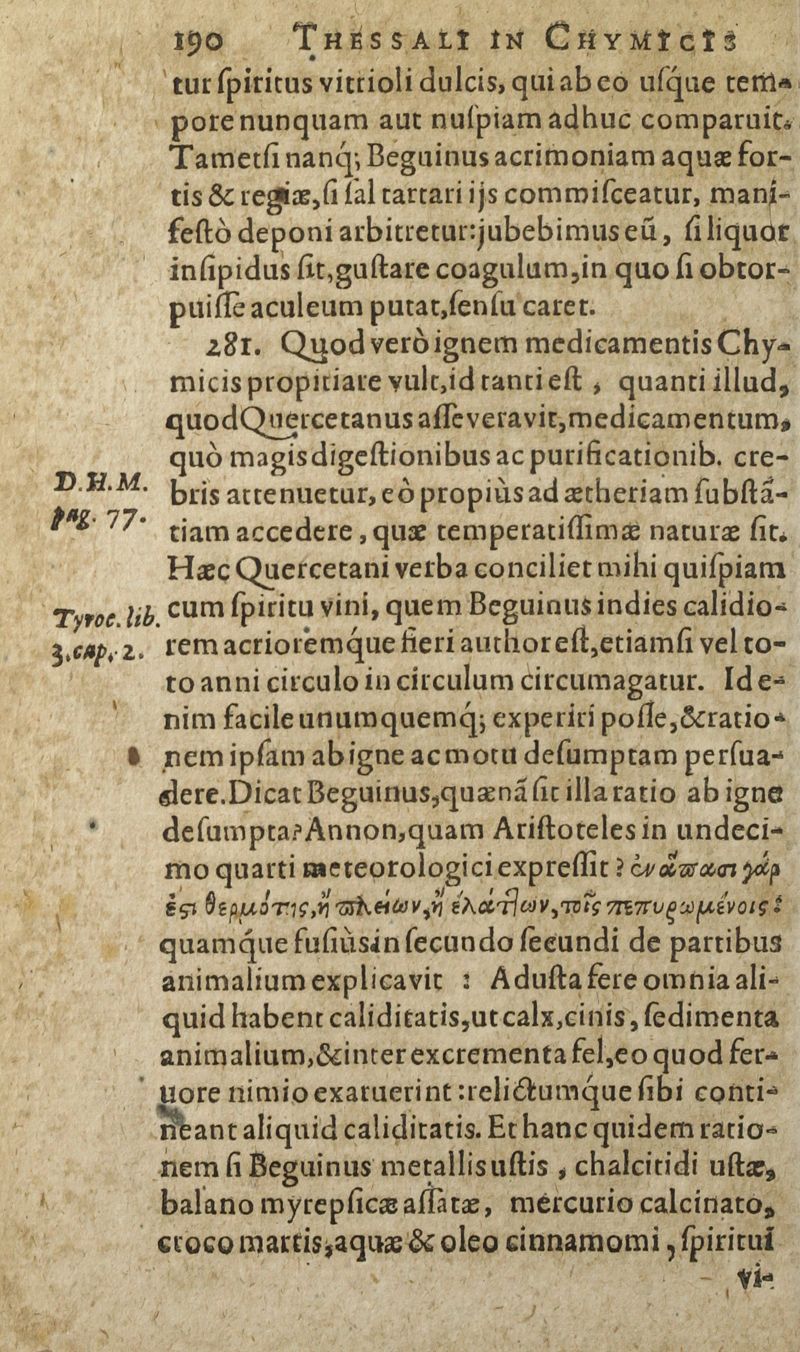 190 THESSALI IN CHYMICIS
tur ſpiritus vitrioli dulcis, qui ab eo uſque tem-
pore nunquam aut nuſpiam adhuc comparuit.
Tametſi nanq; Beguinus acrimoniam aquæ for-
tis & regiæ, ſi ſal tartari ijs commiſceatur, mani-
feſtò deponi arbitretur: jubebimus eũ, ſi liquor
inſipidus ſit, guſtare coagulum, in quo ſi obtor-
puiſſe aculeum putat, ſenſu caret.
281. Quod verò ignem medicamentis Chy-
micis propitiare vult, id tanti eſt, quanti illud,
quod Quercetanus aſſeveravit, medicamentum,
quò magis digeſtionibus ac purificationib. cre-
D.H.M. bris attenuetur, eò propiùs ad ætheriam ſubſtã-
pag. 77. tiam accedere, quæ temperatiſſimæ naturæ ſit.
Hæc Quercetani verba conciliet mihi quiſpiam
Tyroc. lib. cum ſpiritu vini, quem Beguinus indies calidio-
3. cap. 2. rem acrioremque fieri author eſt, etiamſi vel to-
to anni circulo in circulum circumagatur. Id e-
nim facile unumquemq; experiri poſſe, & ratio-
nem ipſam ab igne ac motu deſumptam perſua-
dere. Dicat Beguinus, quænã ſit illa ratio ab igne
deſumpta? Annon, quam Ariſtoteles in undeci-
mo quarti meteorologici expreſſit? ἐν ἅπασι γάρ
ἐϛι θερμότης, ἢ πλειων, ἢ ἐλάττων, τοῖς πεπυρωμένοις:
quamque fuſiùs in ſecundo ſecundi de partibus
animalium explicavit: Aduſta fere omnia ali-
quid habent caliditatis, ut calx, cinis, ſedimenta
animalium, & inter excrementa fel, eo quod fer-
vore nimio exaruerint: relictumque ſibi conti-
neant aliquid caliditatis. Et hanc quidem ratio-
nem ſi Beguinus metallis uſtis, chalcitidi uſtæ,
balano myrepſicæ aſſatæ, mercurio calcinato,
croco martis, aquæ & oleo cinnamomi, ſpiritui
vi-